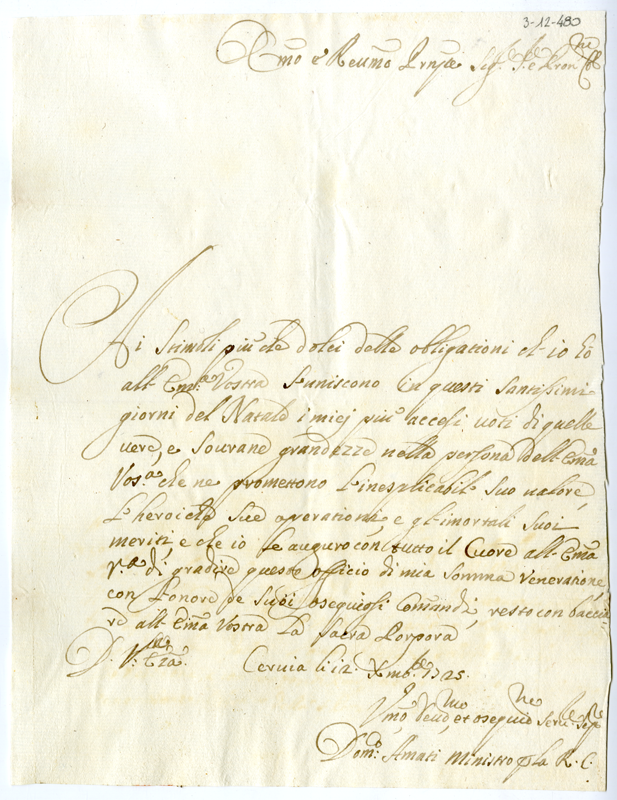 3-12-480
Emo e Reumo Prnpe Sig.re
Ai Stimoli più che dolci delle obligationi ch'io hò
all'Em.a Vostra s'uniscono in questi Santissimi
giorni del Natale i miej più accesi voti di quelle
vere, e Sourane grandezze nella persona dell'Ema
Vos.a che ne promettono l'inesplicabile suo valore,
l'heroiche sue operationi, e gl'imortali suoi
meriti, e che io le auguro con tutto il Cuore all'Ema
V.a di gradire questo officio di mia somma Veneratione,
con l'onore de suoi ossequiosi Comandi, resto con baccia-
re all'Ema Vostra La Sacra Porpora
D. V. Eza. Ceruia li 12 Xmbre 1725.
Vmo Deuo, et osequio Seru.
Dom.co Amati Ministro p la R. C.